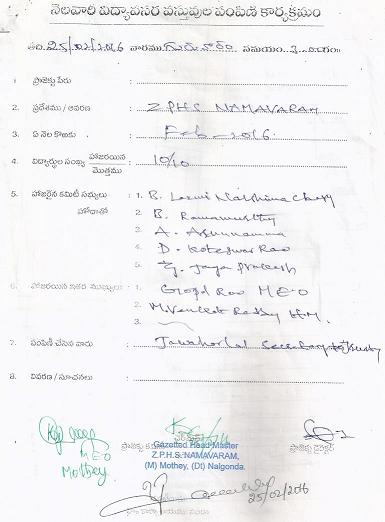 నెలవారి విద్యావసర వస్తువుల పంపిణి కార్యక్రమం
తేది 25/02/2016 వారము గురువారం సమయం 3.00గం
1. ప్రాజెక్టు పేరు
2. ప్రదేశము / ఆవరణ : Z.P.H.S NAMAVARAM
3. ఏ నెల కొఱకు : Feb-2016.
4. విద్యార్థుల సంఖ్య హాజరయిన / మొత్తము : 10/10
5. హాజరైన కమిటీ సభ్యులు : 1. B. Laxmi Narshima
హోదాతో 2. B. Ramamurthy
3. A.
4. D. Koteswar Rao
5. G. Jaya Prakash
6. హాజరయిన ఇతర ముఖ్యులు : 1. Gopal Rao M E O
2. M. Venkat Reddy H.M.
3.
7. పంపిణీ చేసిన వారు : Jawaharlal Secretary
8. వివరణ / సూచనలు :
MEO
Mothey
Gazetted Head Master
Z.P.H.S. NAMAVARAM,
(M) Mothey, (Dt) Nalgonda.
ప్రాజెక్టు డైరెక్టర్
25/02/2016